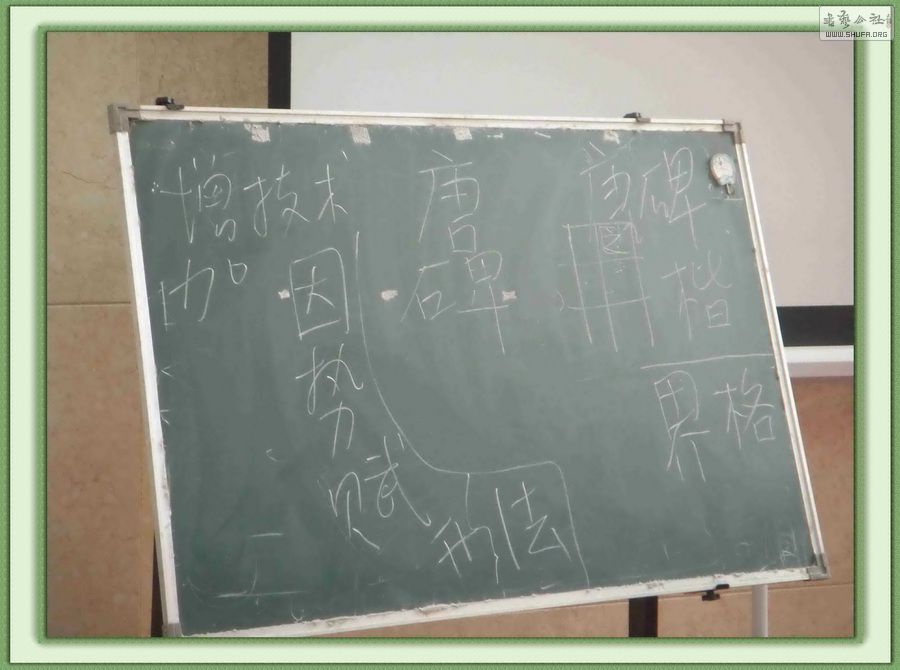 书艺公社
WWW.SHUFA.ORG
增技术
加
因势赋
法
唐碑
唐碑
楷
界格